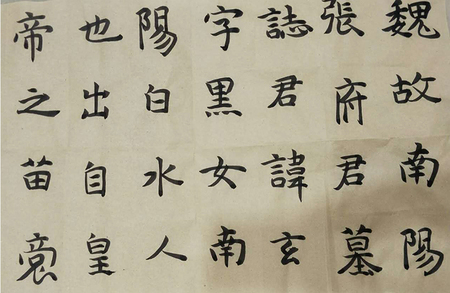 魏故南陽
張府君墓
誌君諱玄
字黑女南
陽白水人
也出自皇
帝之苗裔